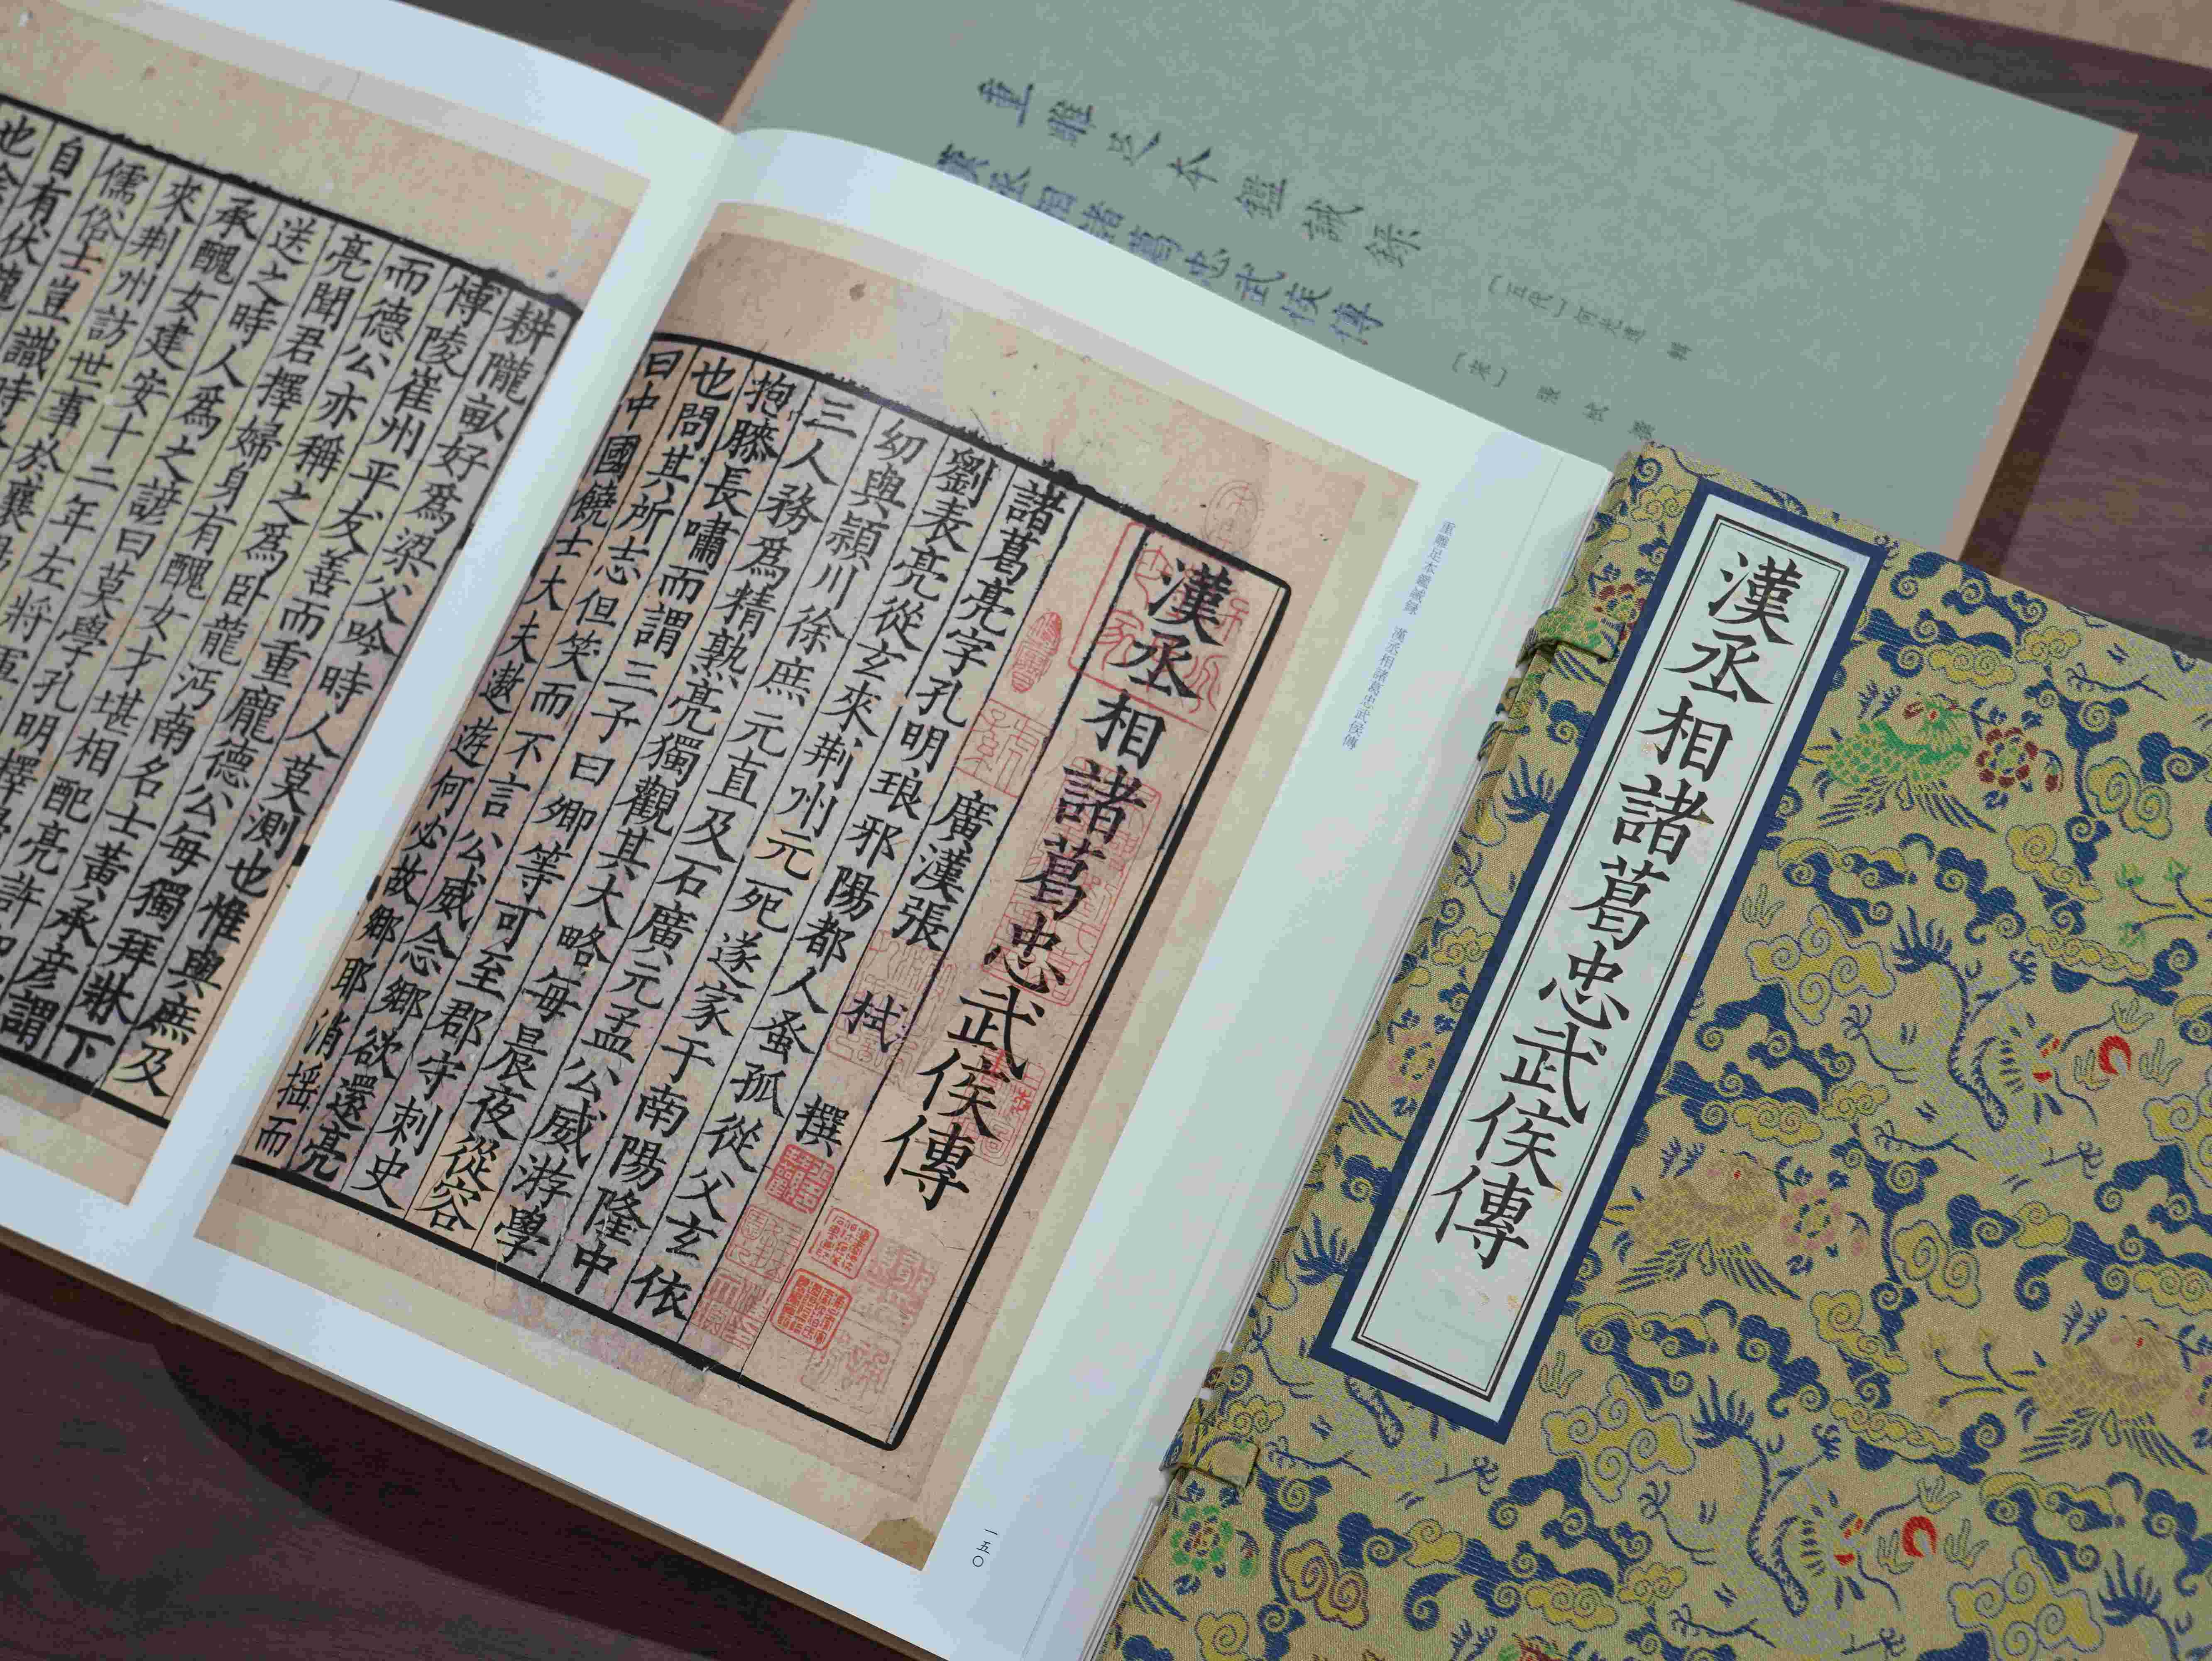 重雕足本鑑誡錄 〔五代〕何光遠 輯
漢丞相諸葛忠武侯傳 〔宋〕張栻 撰
漢丞相諸葛忠武侯傳
重雕足本鑑誡録 漢丞相諸葛忠武侯傳
漢丞相諸葛忠武侯傳
廣漢張 栻 撰
諸葛亮字孔明琅邪陽都人蚤孤從父玄依
劉表亮從玄來荆州元死遂家于南陽隆中
幼與潁川徐庶元直及石廣元孟公威游學
三人務爲精熟亮獨觀其大略每晨夜從容
抱膝長嘯而謂三子曰卿等可至郡守刺史
也問其所志但笑而不言公威念鄉欲還亮
曰中國饒士大夫遨遊何必故鄉耶消摇而
一五〇
耕隴畝好爲梁父吟時人莫測也惟與庶及
博陵崔州平友善而重龐德公每獨拜牀下
而德公亦稱之爲卧龍沔南名士黃承彦謂
亮聞君擇婦身有醜女才堪相配亮許
送之時人爲之諺曰莫學孔明擇
承醜女建安十二年左將軍
來荆州訪世事於襄
儒俗士豈識時
自有伏龍
也